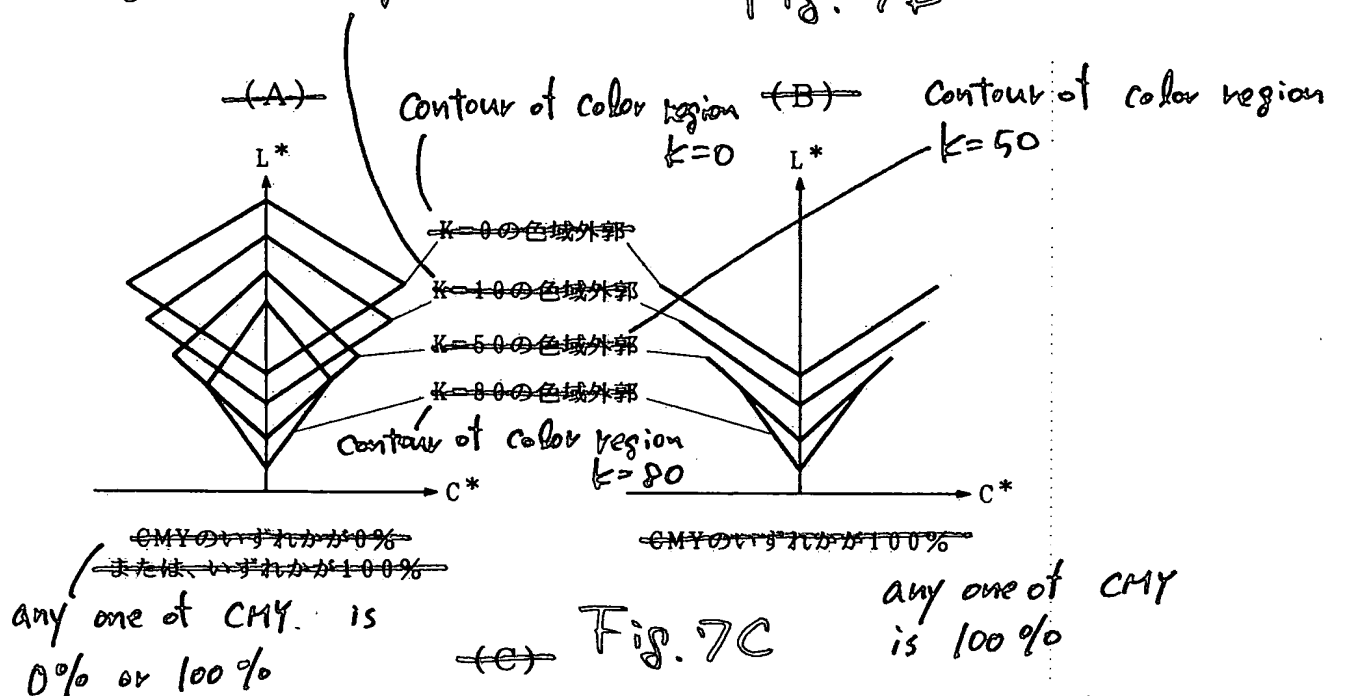 Fig. 7B
(A)
Contour of color region
k=0
(B)
Contour of color region
k=50
L*
L*
K=0の色域外郭
K=10の色域外郭
K=50の色域外郭
K=80の色域外郭
Contour of color region
k=80
C*
C*
CMYのいずれかが0%
または、いずれかが100%
CMYのいずれかが100%
any one of CMY. is
0% or 100%
(C)
Fig. 7C
any one of CMY
is 100%